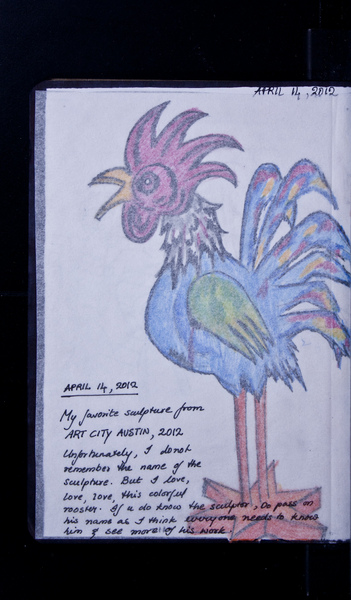 APRIL 14, 2012
APRIL 14, 2012
My favorite sculpture from
ART CITY AUSTIN, 2012
Unfortunately, I donot
remember the name of the
sculpture. But I love,
love, love, this colorful
rooster. If u do know the sculptor, Do pass on
his name as I think everyone needs to know
him & see more of his work.